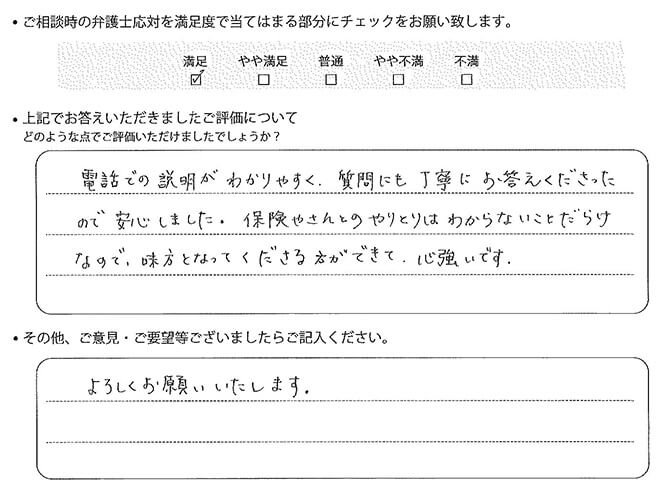 ・ご相談時の弁護士応対を満足度で当てはまる部分にチェックをお願い致します。
満足 やや満足 普通 やや不満 不満
☑ □ □ □ □
・上記でお答えいただきましたご評価について
どのような点でご評価いただけましたでしょうか？
電話での説明がわかりやすく、質問にも丁寧にお答えくださった
ので安心しました。保険やさんとのやりとりはわからないことだらけ
なので、味方となってくださる方ができて、心強いです。
・その他、ご意見・ご要望等ございましたらご記入ください。
よろしくお願いいたします。